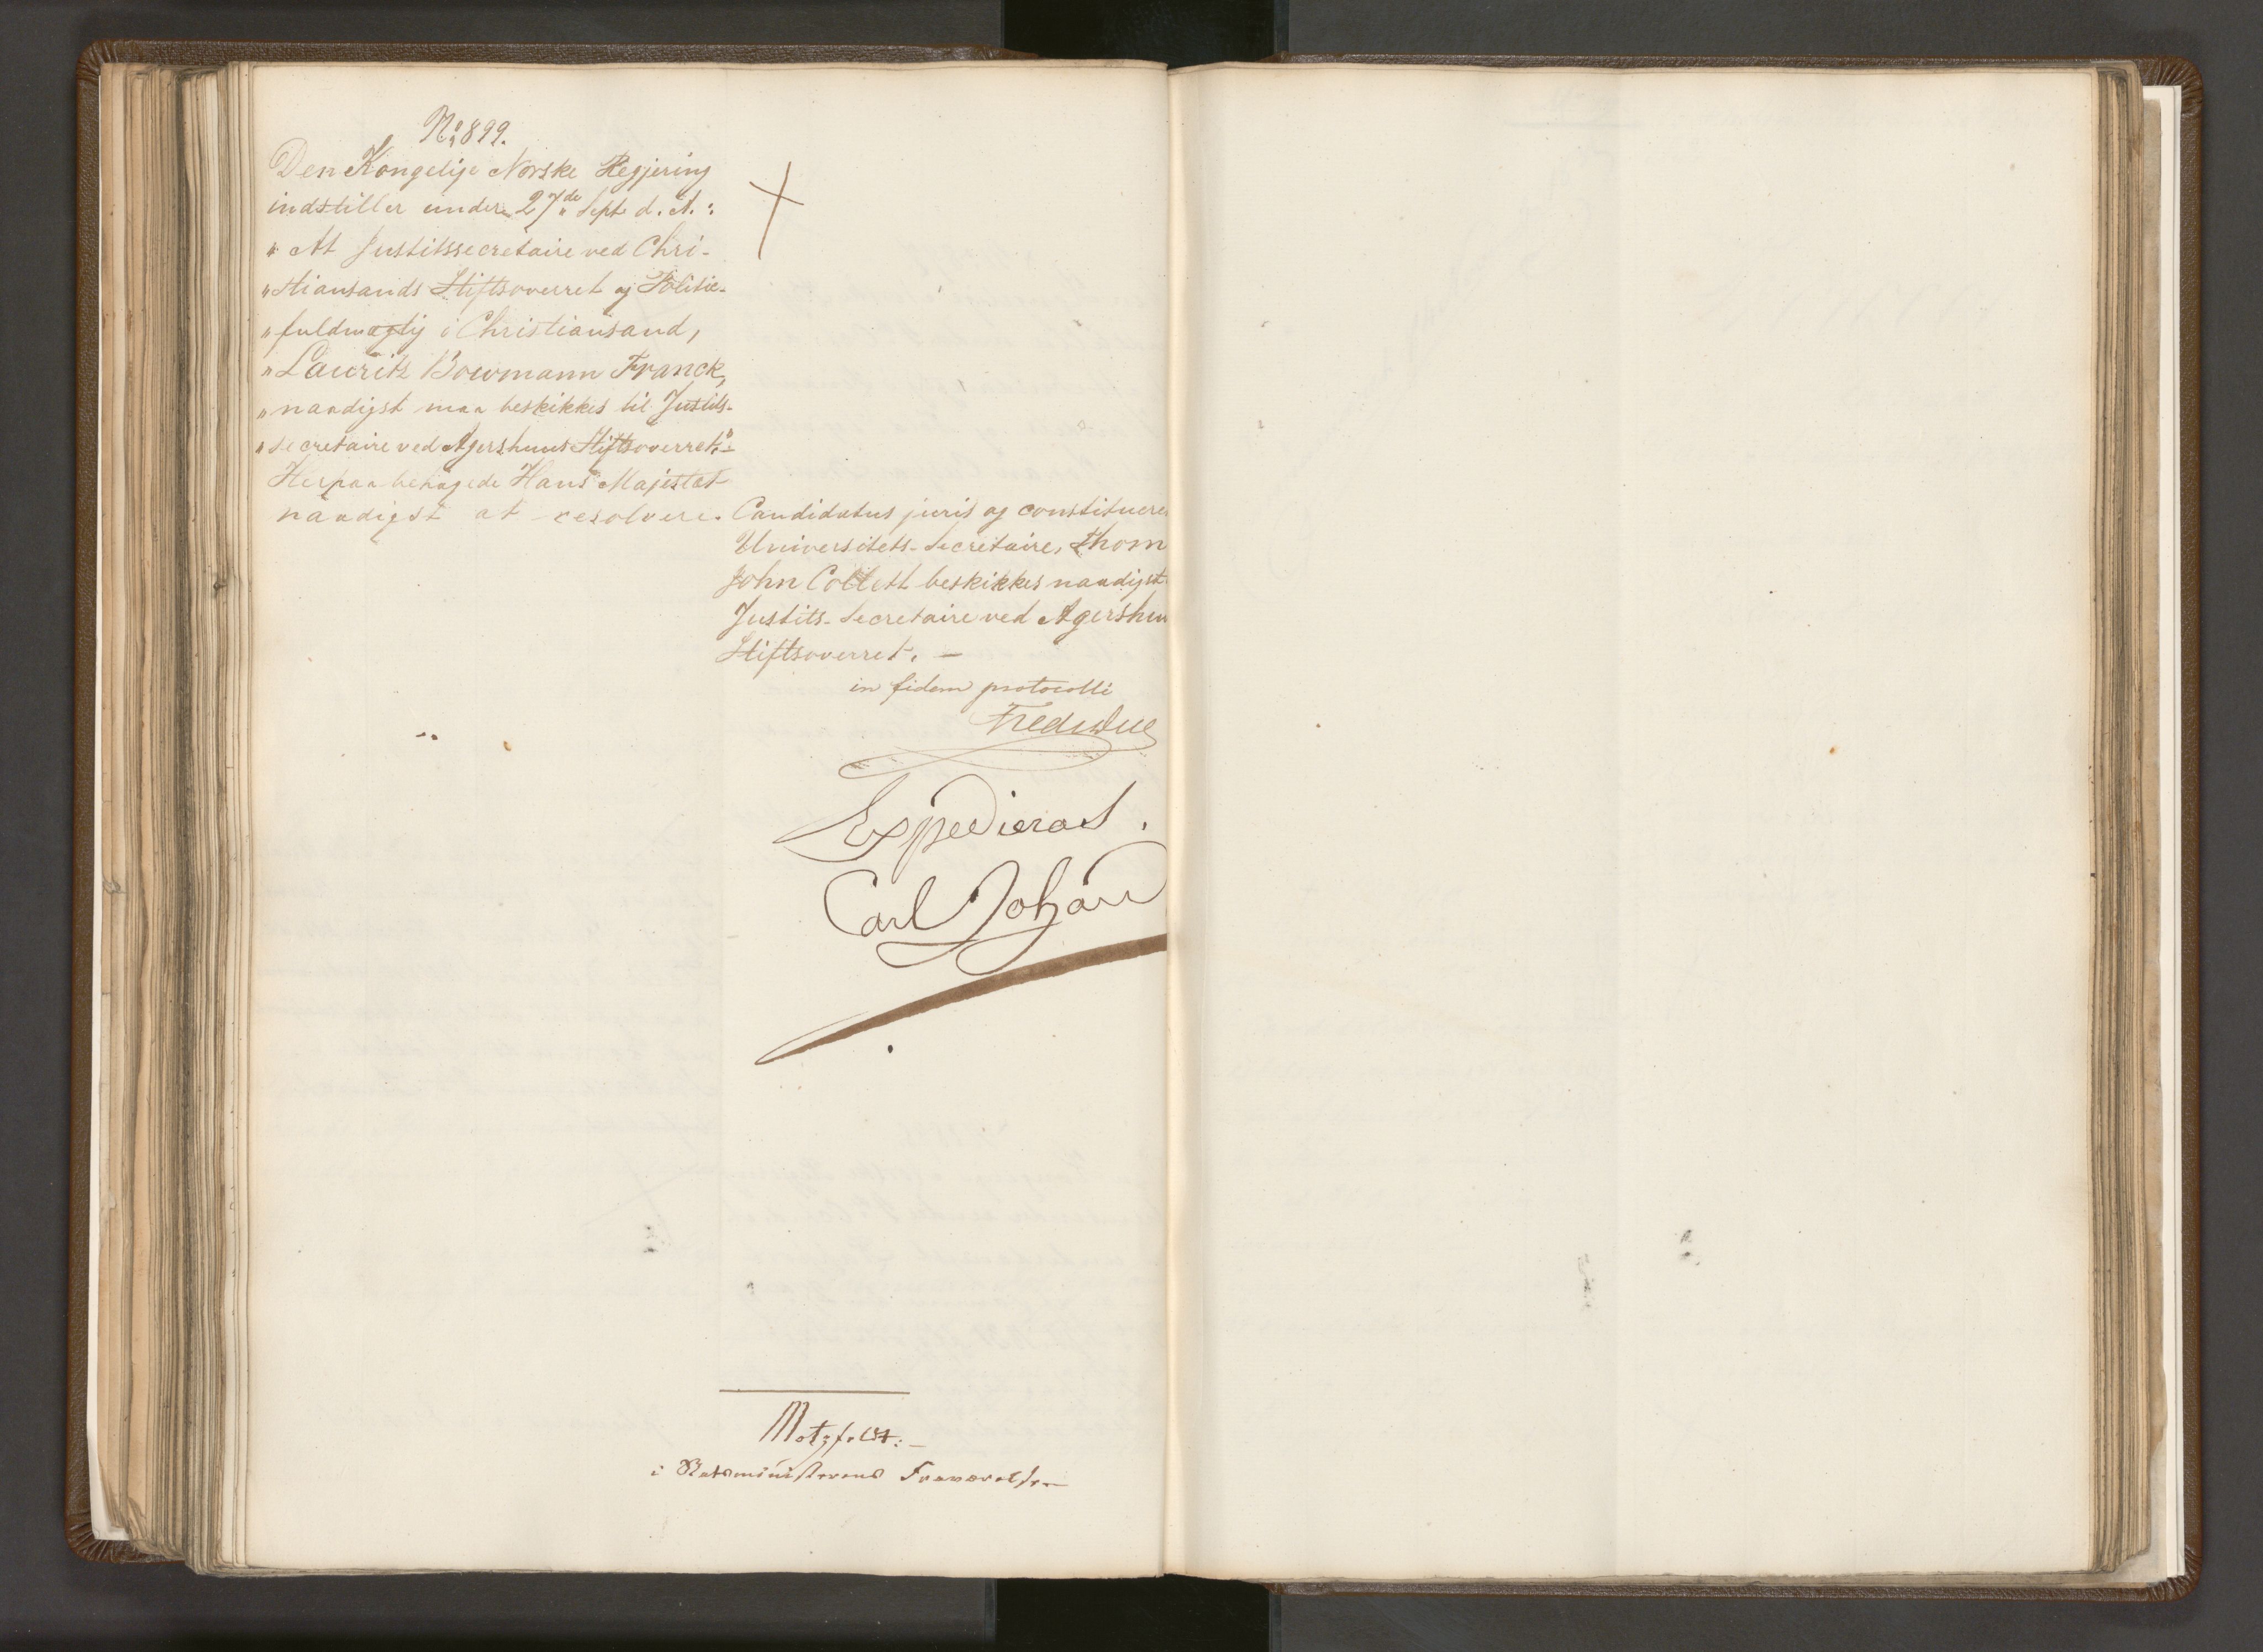 No 899.
Den Kongelige Norske Regjering
indstiller under 27de Sept d. A.:
"At Justitssecretaire ved Chri-
"stiansands Stiftsoverret og Politie-
"fuldmægtig i Christiansand,
"Lauritz Bowmann Franck,
"naadigst maa beskikkes til Justits-
"secretaire ved Agershuus Stiftsoverret."-
Herpaa behagede Hans Majestæt
naadigst at resolvere.
Candidatus juris og constituere
Universitets-Secretaire, Thom
John Collett beskikkes naadigst
Justits-Secretaire ved Agershu
Stiftsoverret. -
in fidem protocolli
Fred: Due
Expedieras.
Carl Johan
Motzfeldt:-
i Statsministerens Fraværelse